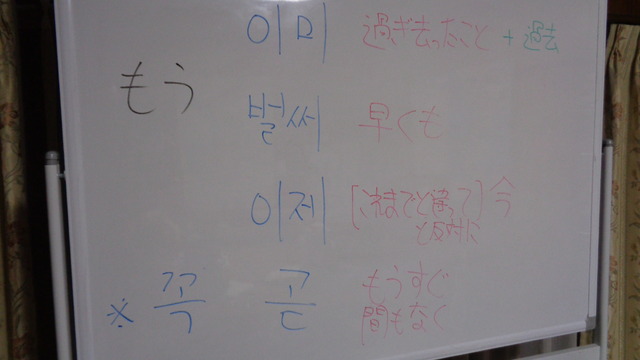 이미 過ぎ去ったこと + 過去
もう
벌써 早くも
이제 [これまでと違って] 今
と反対に
※ 꼭 곧 もうすぐ
間もなく